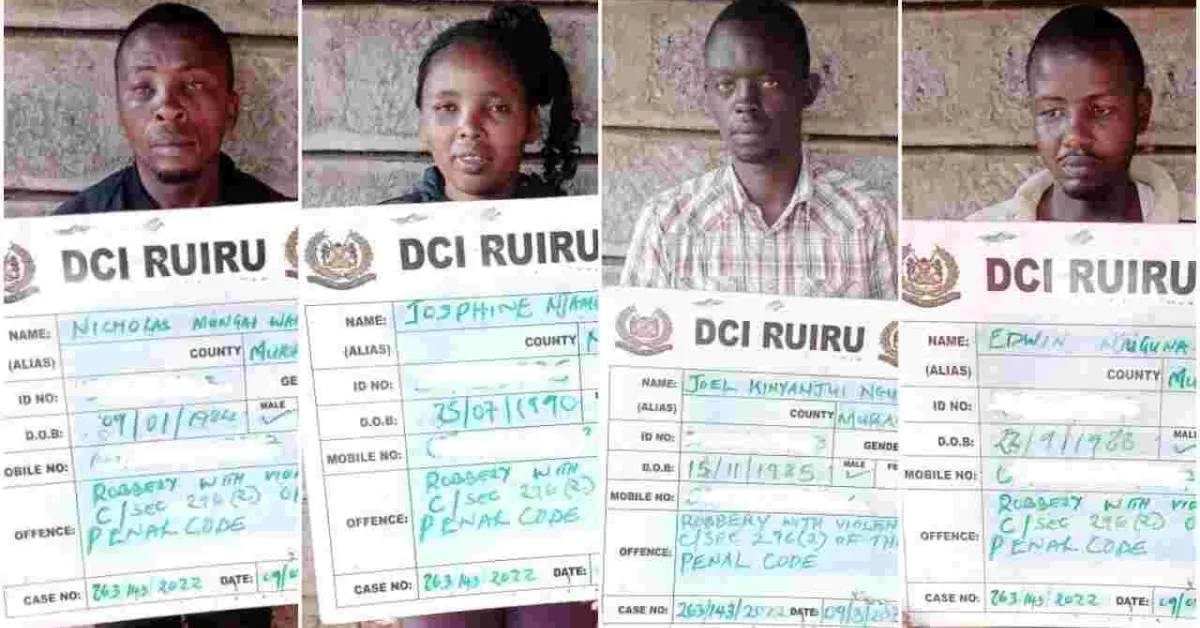 DCI RUIRU
NAME: NICHOLAS MUNGAI
(ALIAS) COUNTY
ID NO:
D.O.B: 09/01/1984 MALE ✓
OBILE NO:
OFFENCE: ROBBERY WITH
C/SEC 296(2)
PENAL CODE
CASE NO: 263/143/2022 DATE:
DCI RUIRU
NAME: JOSPHINE
(ALIAS) COUNTY
ID NO:
D.O.B: 25/07/1990
MOBILE NO:
OFFENCE: ROBBERY WITH
C/SEC 296(2)
PENAL CODE
CASE NO: 263/143/2022 DATE:
DCI RUIRU
NAME: JOEL KINYANJUI NGU
(ALIAS) COUNTY MURA
ID NO: 3 GENDE
D.O.B: 15/11/1985 MALE ✓ FE
MOBILE NO:
OFFENCE: ROBBERY WITH VIOLEN
C/SEC 296(2) OF TH
PENAL CODE
CASE NO: 263/143/2022 DATE:
DCI RUIRU
NAME: EDWIN NJUGUNA
(ALIAS) COUNTY MU
ID NO:
D.O.B: MAL ✓
MOBILE NO: 2
OFFENCE: ROBBERY WITH VIO
C/SEC 296(2) O
PENAL CODE
CASE NO: 263/143/2022 DATE: